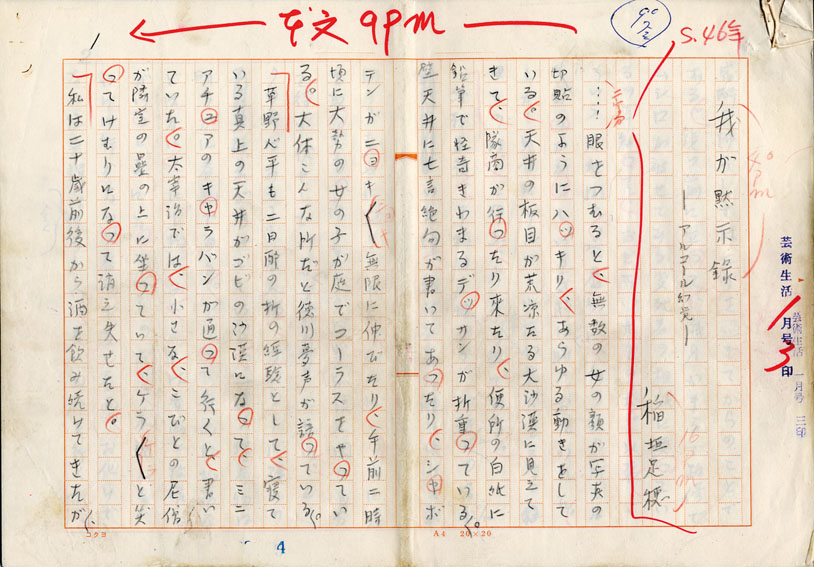 本文 9pm
S.46年
我が黙示録
―アルコール幻覚―
稲垣足穂
…眼をつむると、無数の女の顔が写真の
切貼のようにハッキリ、あらゆる動きをして
いる。天井の板目が荒凉たる大沙漠に見立て
きて、隊商が往ったり来たり、便所の白紙に
鉛筆で怪奇きわまるデッサンが折重っている。
壁天井に七言絶句が書いてあったり、シャボ
テンがニョキ〱無限に伸びたり、午前二時
頃に大勢の女の子が庭でコーラスをやってい
る。大体こんな所だと徳川夢声が語っている。
草野心平も二日酔の折の経験として、寝て
いる真上の天井がゴビの沙漠になって、ミニ
アチュアのキャラバンが通って行くと、書い
ていた。太宰治では、小さな、こびとの尼僧
が隣室の畳の上に坐っていて、ケラ〱と笑
ってけむりになって消え失せたと。
私は二十歳前後から酒を飲み続けてきたが、
芸術生活 1月号 3印
芸術生活 一月号 三印
コクヨ
4
A4 20×20